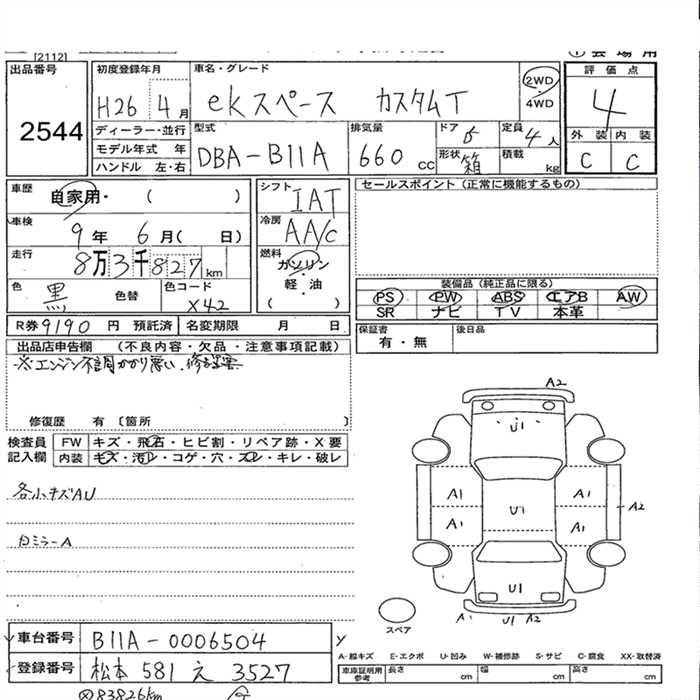 [2112]
出品番号 2544
初度登録年月 H26 4月
車名・グレード ekスペース カスタムT
2WD・4WD
評価点 4
外装 内装
C C
ディーラー・並行
モデル年式 年
ハンドル 左・右
型式 DBA-B11A
排気量 660 CC
ドア 5
形状 箱
定員 4人
積載 kg
車歴 自家用・( )
シフト IAT
セールスポイント(正常に機能するもの)
車検 9年 6月( 日)
冷房 AA/C
走行 8万3千827km
燃料 ガソリン・軽・油 ( )
色 黒 色替
色コード X42
装備品(純正品に限る)
PS PW ABS エアB AW
SR ナビ TV 本革
R券 9190 円 預託済 名変期限 月 日
保証書 有・無
後日品
出品店申告欄 (不良内容・欠品・注意事項記載)
※エンジン不調かかり悪い、修
修復歴 有 〔箇所 〕
検査員記入欄
FW キズ・飛石・ヒビ割・リペア跡・X要
内装 キズ・汚レ・コゲ・穴・スレ・キレ・破レ
各小キズAU
白ミラーA
A2
U1
A1 A1
U1 A2
A1 A1
U1
A1 U1 A2
スペア
車台番号 B11A-0006504
登録番号 松本 581 え 3527
A-線キズ E-エクボ U-凹み W-補修跡 S-サビ C-腐食 XX-取替済
車庫証明用参考 長さ cm 幅 cm 高さ cm
83826km